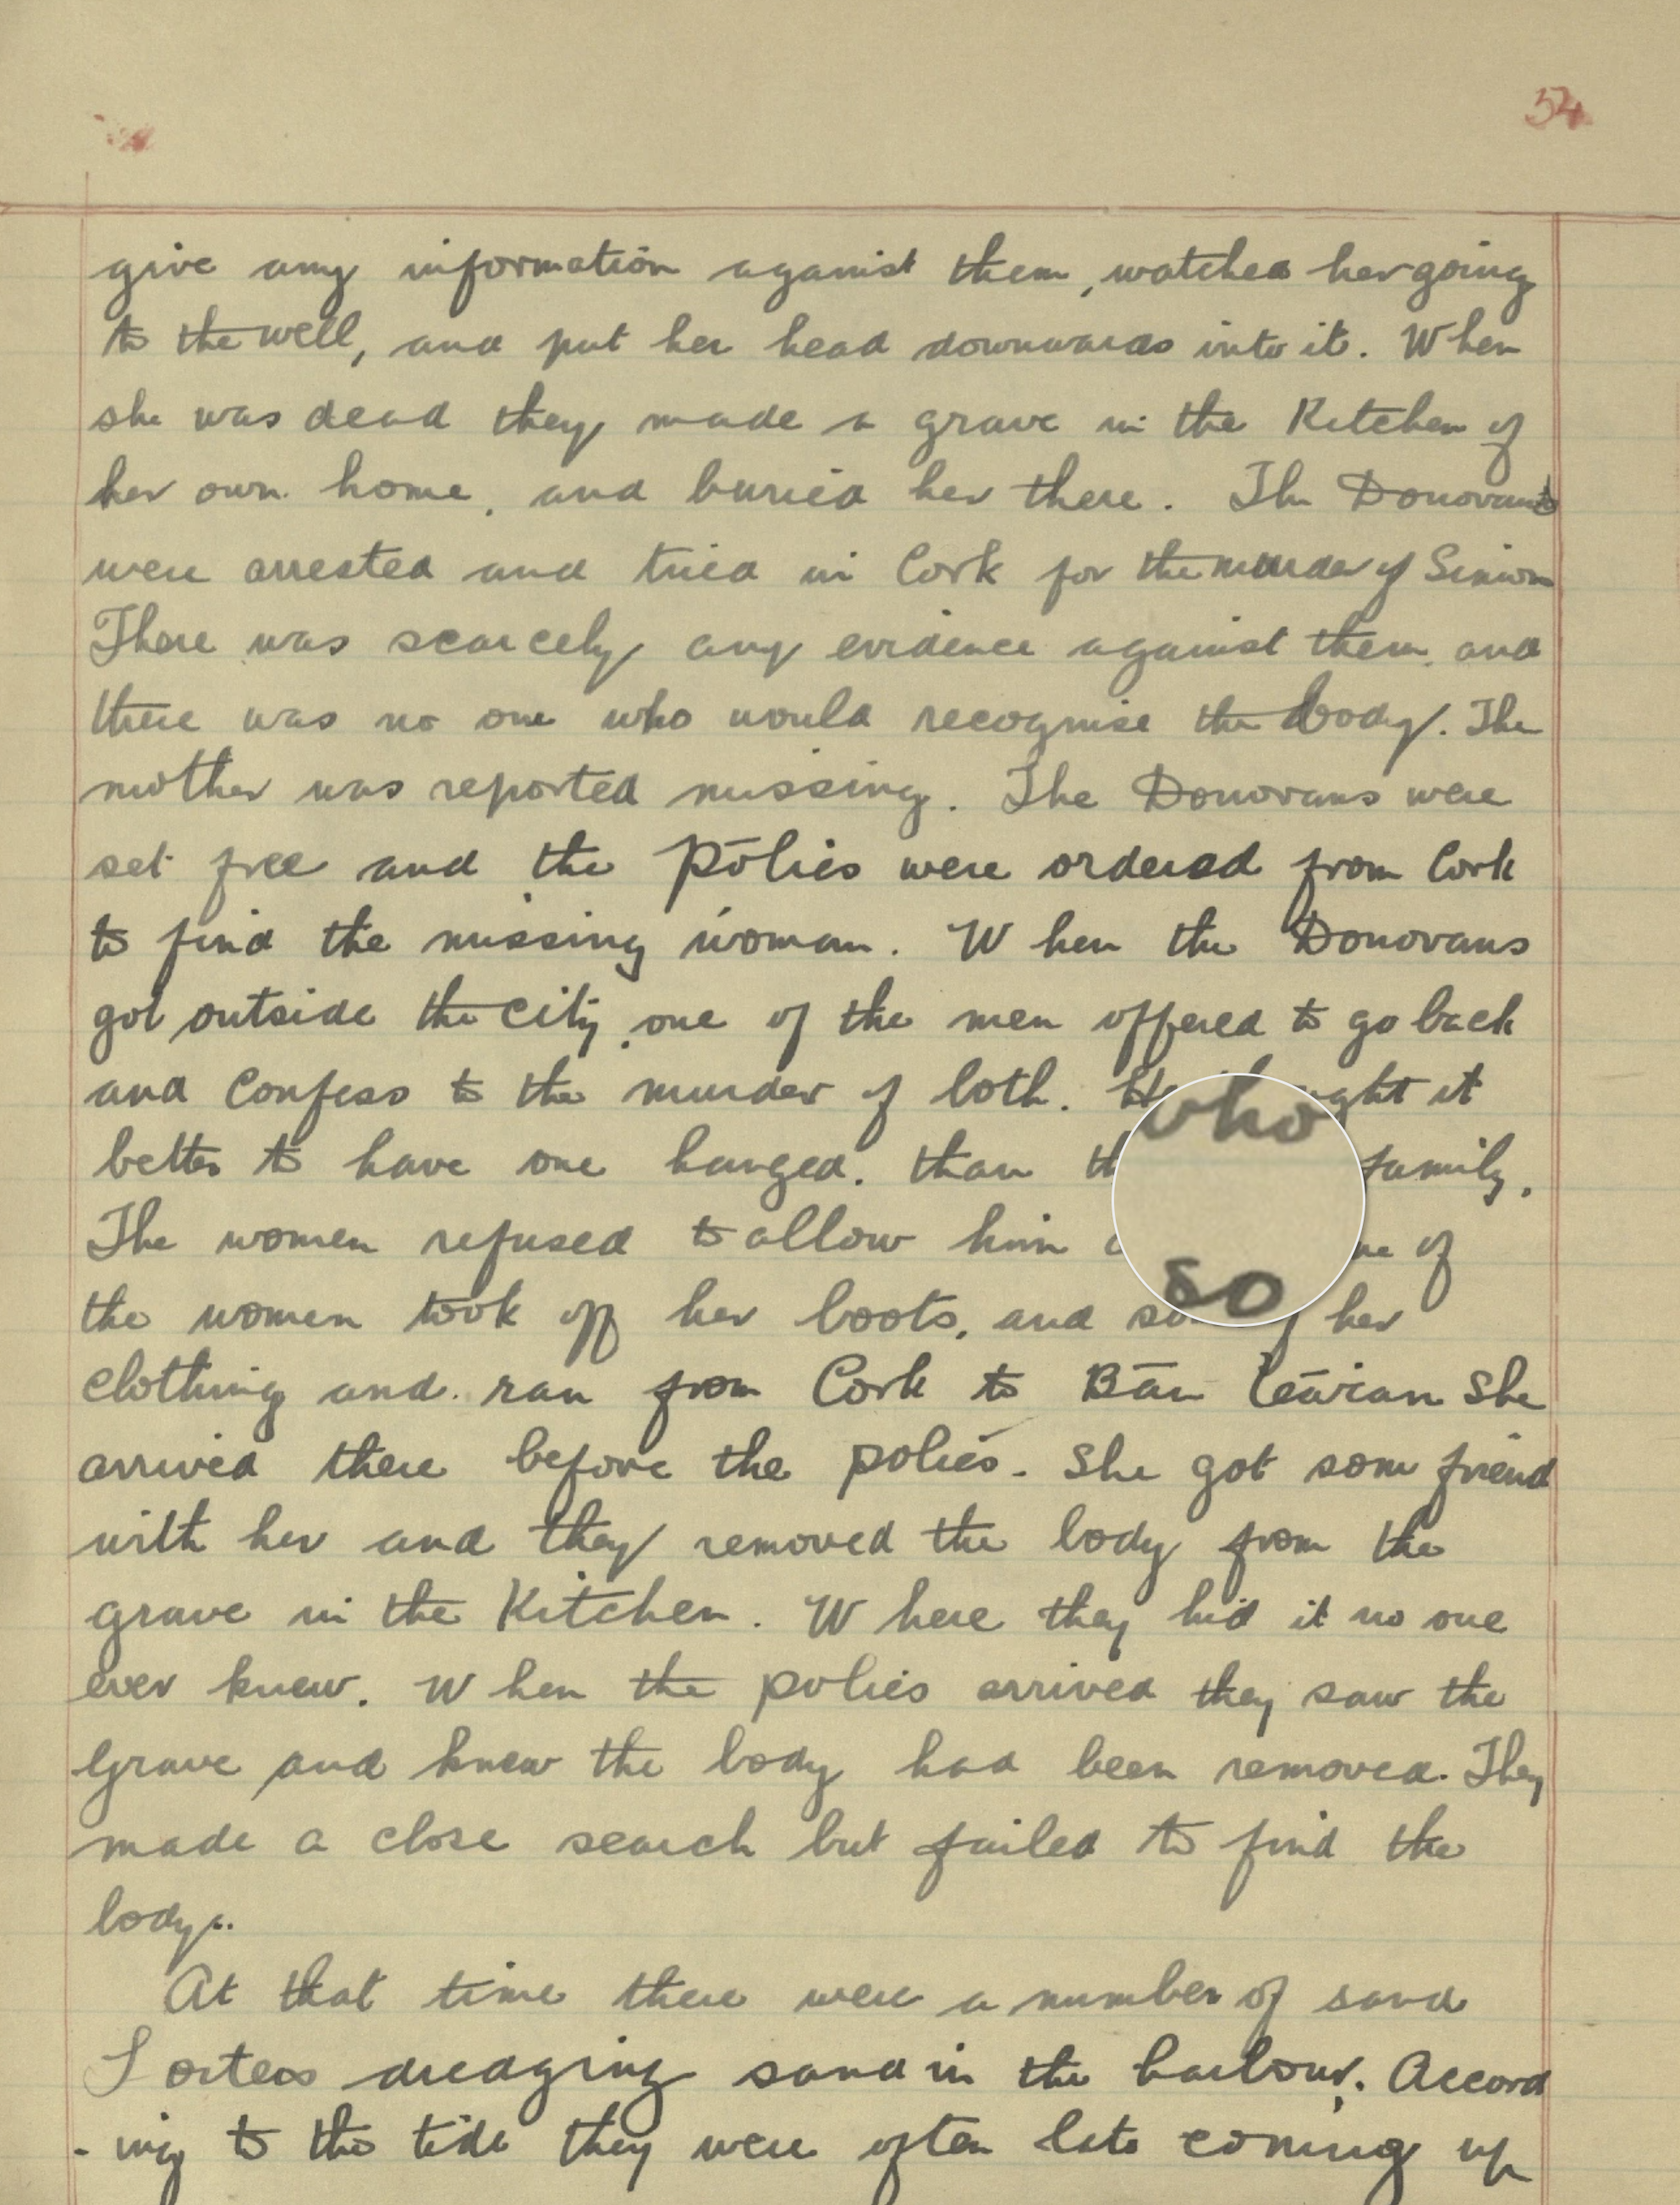 54
give any information against them, watched her going
to the well, and put her head downwards into it. When
she was dead they made a grave in the Kitchen of
her own home, and buried her there. The Donovans
were arrested and tried in Cork for the murder of
There was scarcely any evidence against them, and
there was no one who would recognise the body. The
mother was reported missing. The Donovans were
set free and the polies were ordered from Cork
to find the missing woman. When the Donovans
got outside the city, one of the men offered to go back
and confess to the murder of both. it
better to have one hanged, than family.
The women refused to allow him of
the women took off her boots, and her
clothing and ran from Cork to Bán She
arrived there before the polies. She got some friend
with her and they removed the body from the
grave in the Kitchen. Where they hid it no one
ever knew. When the polies arrived they saw the
grave and knew the body had been removed. They
made a close search but failed to find the
body.
At that time there were a number of sand
dredging sand in the harbour. Accord
-ing to the tide they were often late coming up
who
so